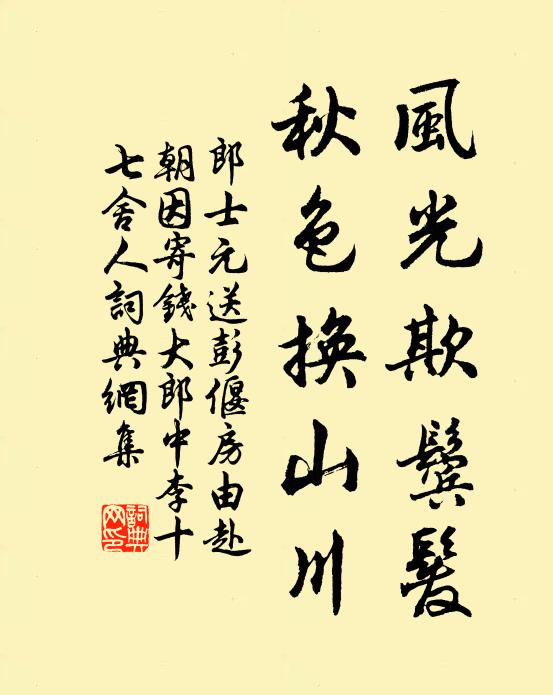 風光欺鬢髮
秋色換山川
郎士元送彭偃房由赴
朝因寄錢大郎中李十
七舍人詞典網集
詞典
网印